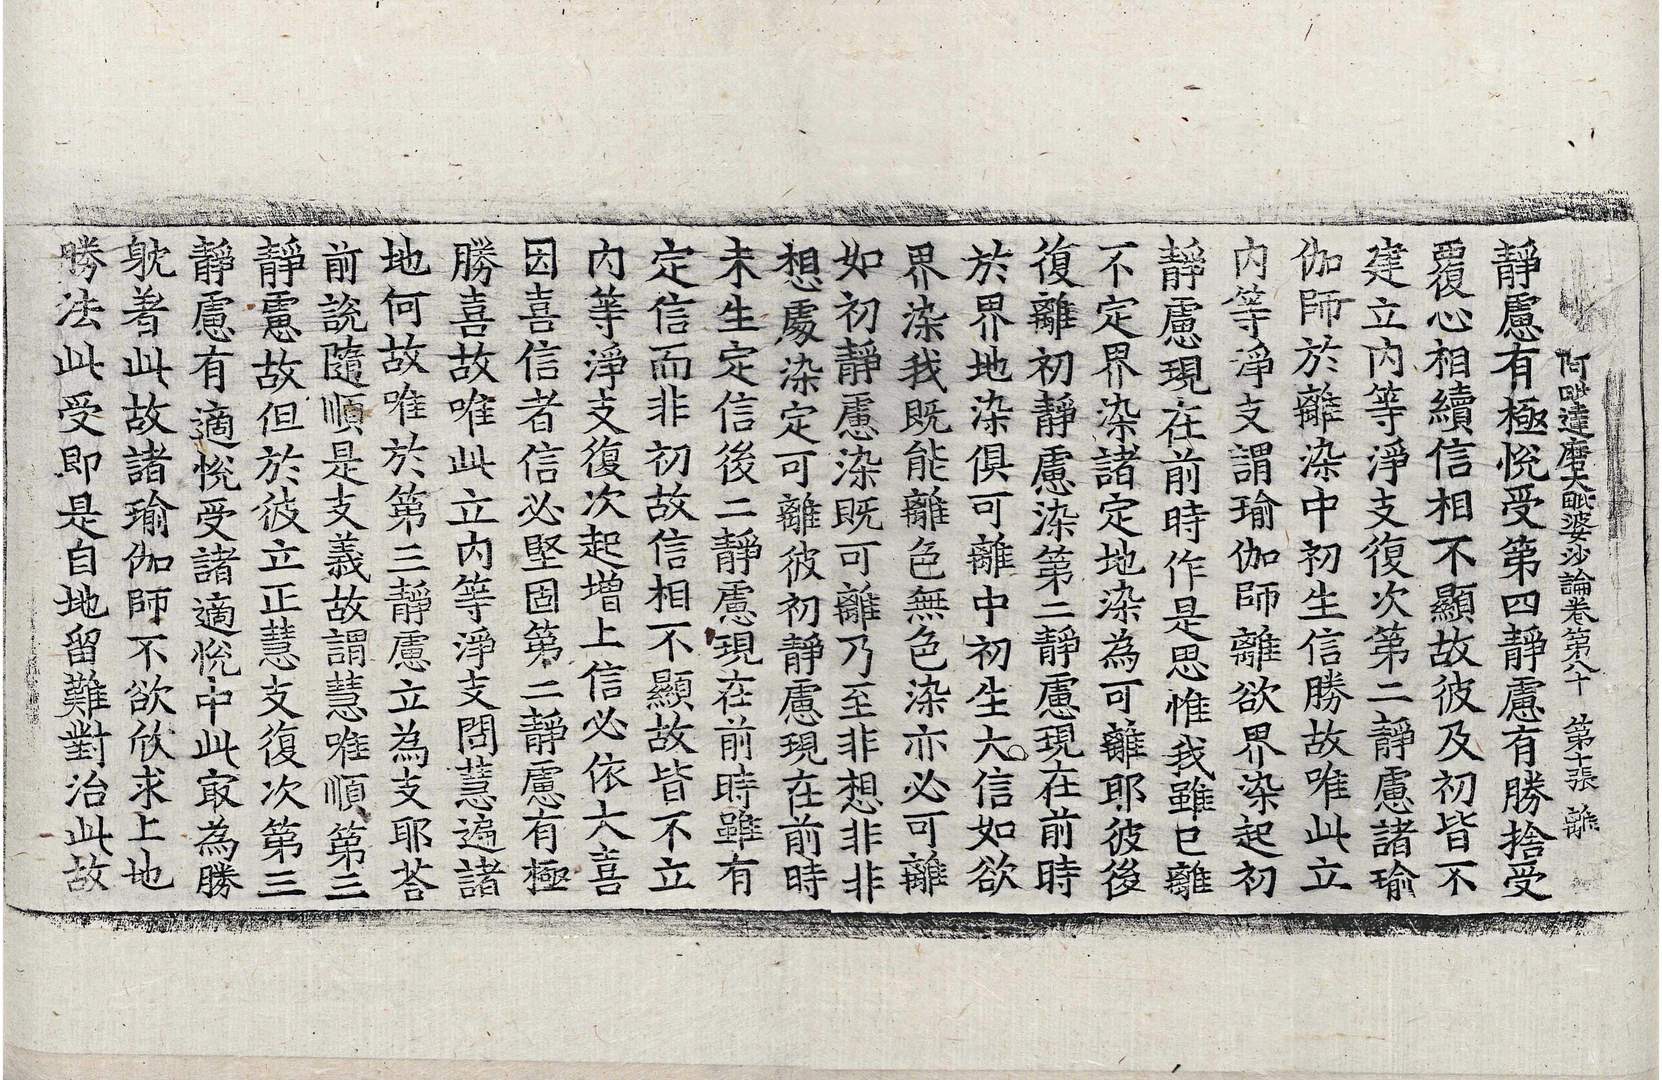 阿毗達磨大毗婆沙論卷第八十 第十張 離
靜慮有極悅受第四靜慮有勝捨受
覆心相續信相不顯故彼及初皆不
建立內等淨支復次第二靜慮諸瑜
伽師於離染中初生信勝故唯此立
內等淨支謂瑜伽師離欲界染起初
靜慮現在前時作是思惟我雖已離
不定界染諸定地染為可離耶彼後
復離初靜慮染第二靜慮現在前時
於界地染俱可離中初生大信如欲
界染我既能離色無色染亦必可離
如初靜慮染既可離乃至非想非非
想處染定可離彼初靜慮現在前時
未生定信後二靜慮現在前時雖有
定信而非初故信相不顯故皆不立
內等淨支復次起增上信必依大喜
因喜信者信必堅固第二靜慮有極
勝喜故唯此立內等淨支問慧遍諸
地何故唯於第三靜慮立為支耶荅
前說隨順是支義故謂慧唯順第三
靜慮故但於彼立正慧支復次第三
靜慮有適悅受諸適悅中此㝡為勝
躭著此故諸瑜伽師不欲欣求上地
勝法此受即是自地留難對治此故